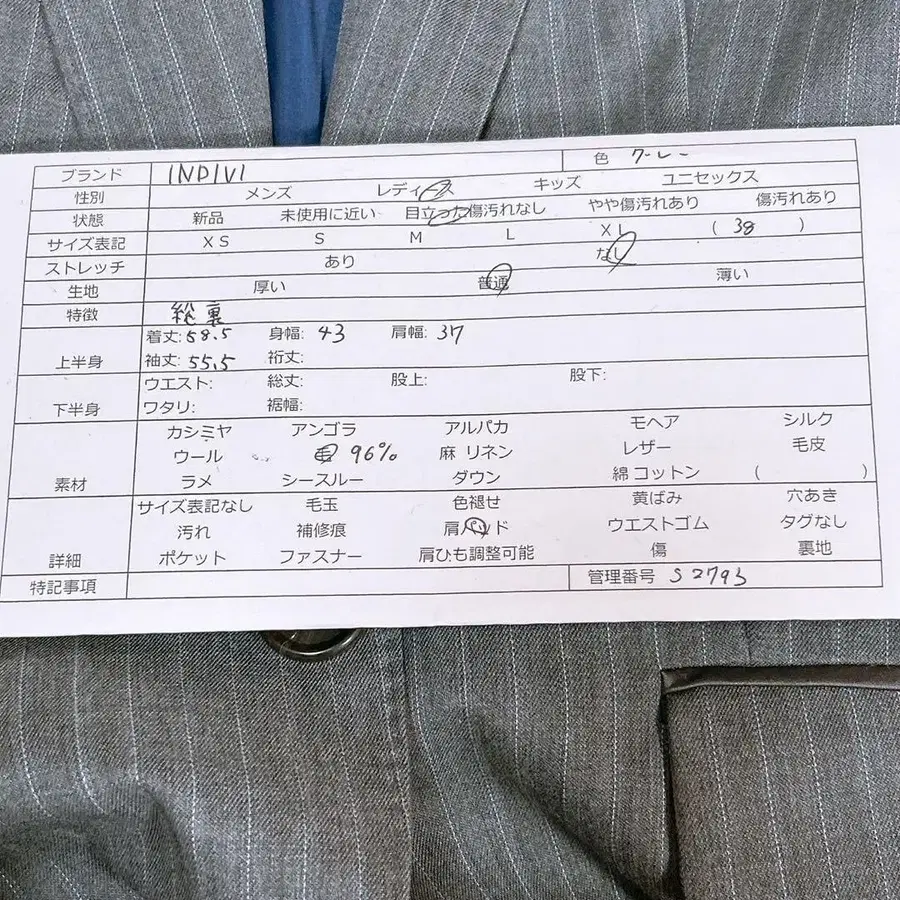 ブランド INDIVI 色 グレー
性別 メンズ レディース キッズ ユニセックス
状態 新品 未使用に近い 目立った傷汚れなし やや傷汚れあり 傷汚れあり
サイズ表記 XS S M L XL ( 38 )
ストレッチ あり なし
生地 厚い 普通 薄い
特徴 総裏
上半身 着丈: 58.5 身幅: 43 肩幅: 37
袖丈: 55.5 裄丈:
下半身 ウエスト: 総丈: 股上: 股下:
ワタリ: 裾幅:
素材 カシミヤ アンゴラ アルパカ モヘア シルク
ウール 毛 96% 麻 リネン レザー 毛皮
ラメ シースルー ダウン 綿 コットン ( )
詳細 サイズ表記なし 毛玉 色褪せ 黄ばみ 穴あき
汚れ 補修痕 肩パッド ウエストゴム タグなし
ポケット ファスナー 肩ひも調整可能 傷 裏地
特記事項 管理番号 S2793